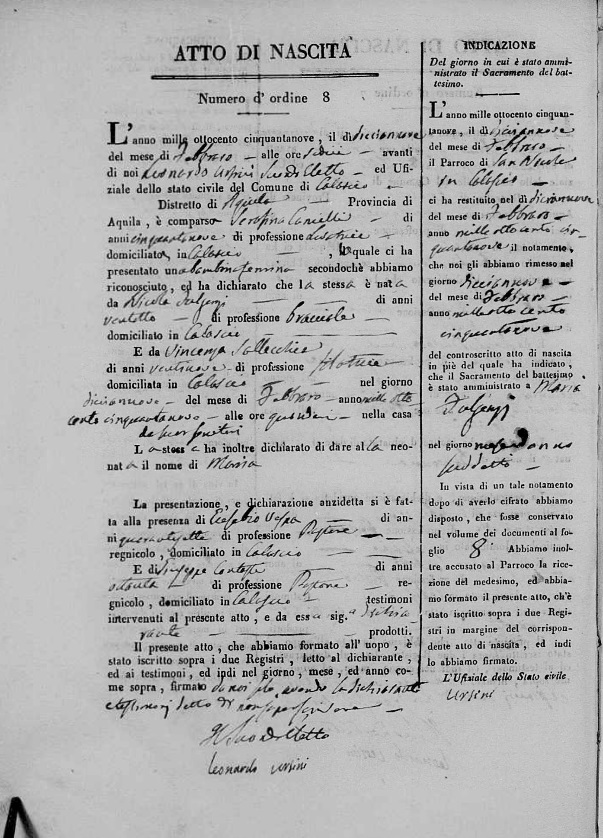 ATTO DI NASCITÀ
Numero d' ordine 8
L'anno mille ottocento cinquantanove , il dì diciannove
del mese di Febbraro alle ore sedici avanti
di noi Leonardo Ursini ed Ufi-
ziale dello stato civile del Comune di Calascio
Distretto di Aquila Provincia di
Aquila , è comparsa Serafina di
anni cinquantanove di professione
domiciliata in Calascio , la quale ci ha
presentato una bambina femina secondochè abbiamo
riconosciuto , ed ha dichiarato che la stessa è nata
da Nicola Fulgenzi di anni
ventotto di professione bracciale
domiciliato in Calascio
E da Vincenza
di anni ventinove di professione filatrice
domiciliata in Calascio nel giorno
diciannove del mese di Febbraro anno mille otto
cento cinquantanove alle ore quindici nella casa
L a stess a ha inoltre dichiarato di dare alla neo-
nat a il nome di Maria
La presentazione , e dichiarazione anzidetta si è fat-
ta alla presenza di Vespa di an-
ni di professione
regnicolo , domiciliato in Calascio
E di Giuseppe di anni
ottanta di professione re-
gnicolo , domiciliato in Calascio testimoni
intervenuti al presente atto , e da essa sig.a dichia
rante prodotti.
Il presente atto , che abbiamo formato all' uopo , è
stato iscritto sopra i due Registri , letto al dichiarante ,
ed ai testimoni , ed indi nel giorno , mese , ed anno co-
me sopra , firmato da noi solo, avendo la dichiarante
e testimonj detto di non saper scrivere
Leonardo Ursini
INDICAZIONE
Del giorno in cui è stato ammi-
nistrato il Sacramento del bat-
tesimo.
L'anno mille ottocento cinquan-
tanove , il dì diciannove
del mese di Febbraro
il Parroco di San Nicola
in Calascio
ci ha restituito nel dì diciannove
del mese di Febbraro
anno mille otto cento cin
quantanove il notamento ,
che noi gli abbiamo rimesso nel
giorno diciannove
del mese di Febbraro
anno mille otto cento
cinquantanove
del controscritto atto di nascita
in piè del quale ha indicato ,
che il Sacramento del battesimo
è stato amministrato a Maria
Fulgenzj
nel giorno
suddetto
In vista di un tale notamento
dopo di averlo cifrato abbiamo
disposto , che fosse conservato
nel volume dei documenti al fo-
glio 8 Abbiamo inol-
tre accusato al Parroco la rice-
zione del medesimo, ed abbia-
mo formato il presente atto, ch'è
stato iscritto sopra i due Regi-
stri in margine del corrispon-
dente atto di nascita , ed indi
lo abbiamo firmato.
L'Ufiziale dello Stato civile
Ursini